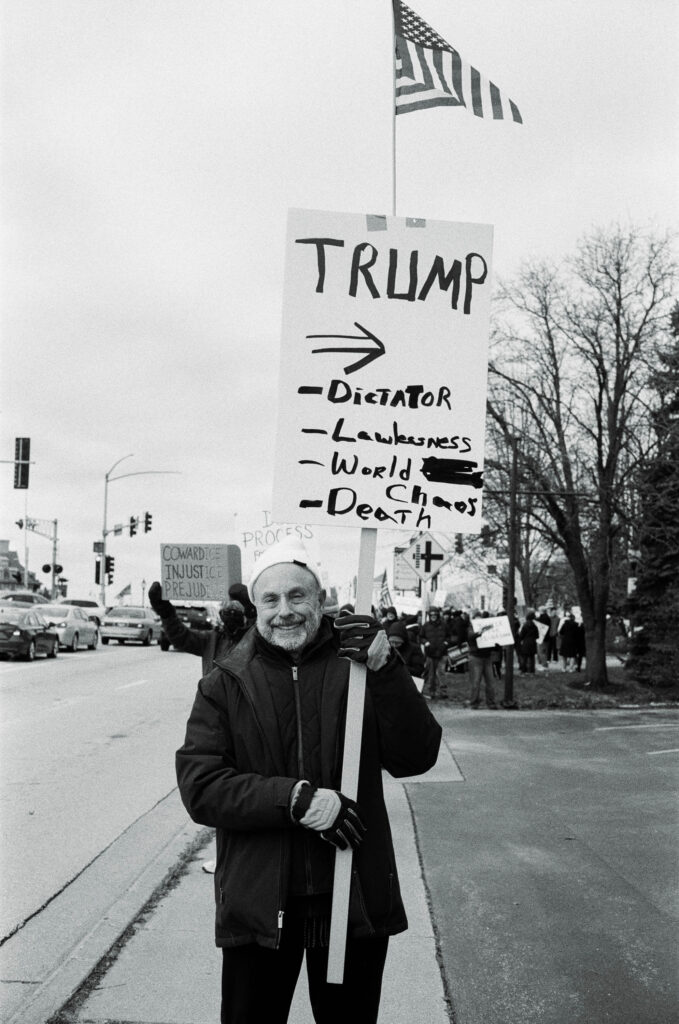 TRUMP
- DICTATOR
- Lawlessness
- World
Chaos
- Death
COWARDICE
INJUSTICE
PREJUD
PROCESS